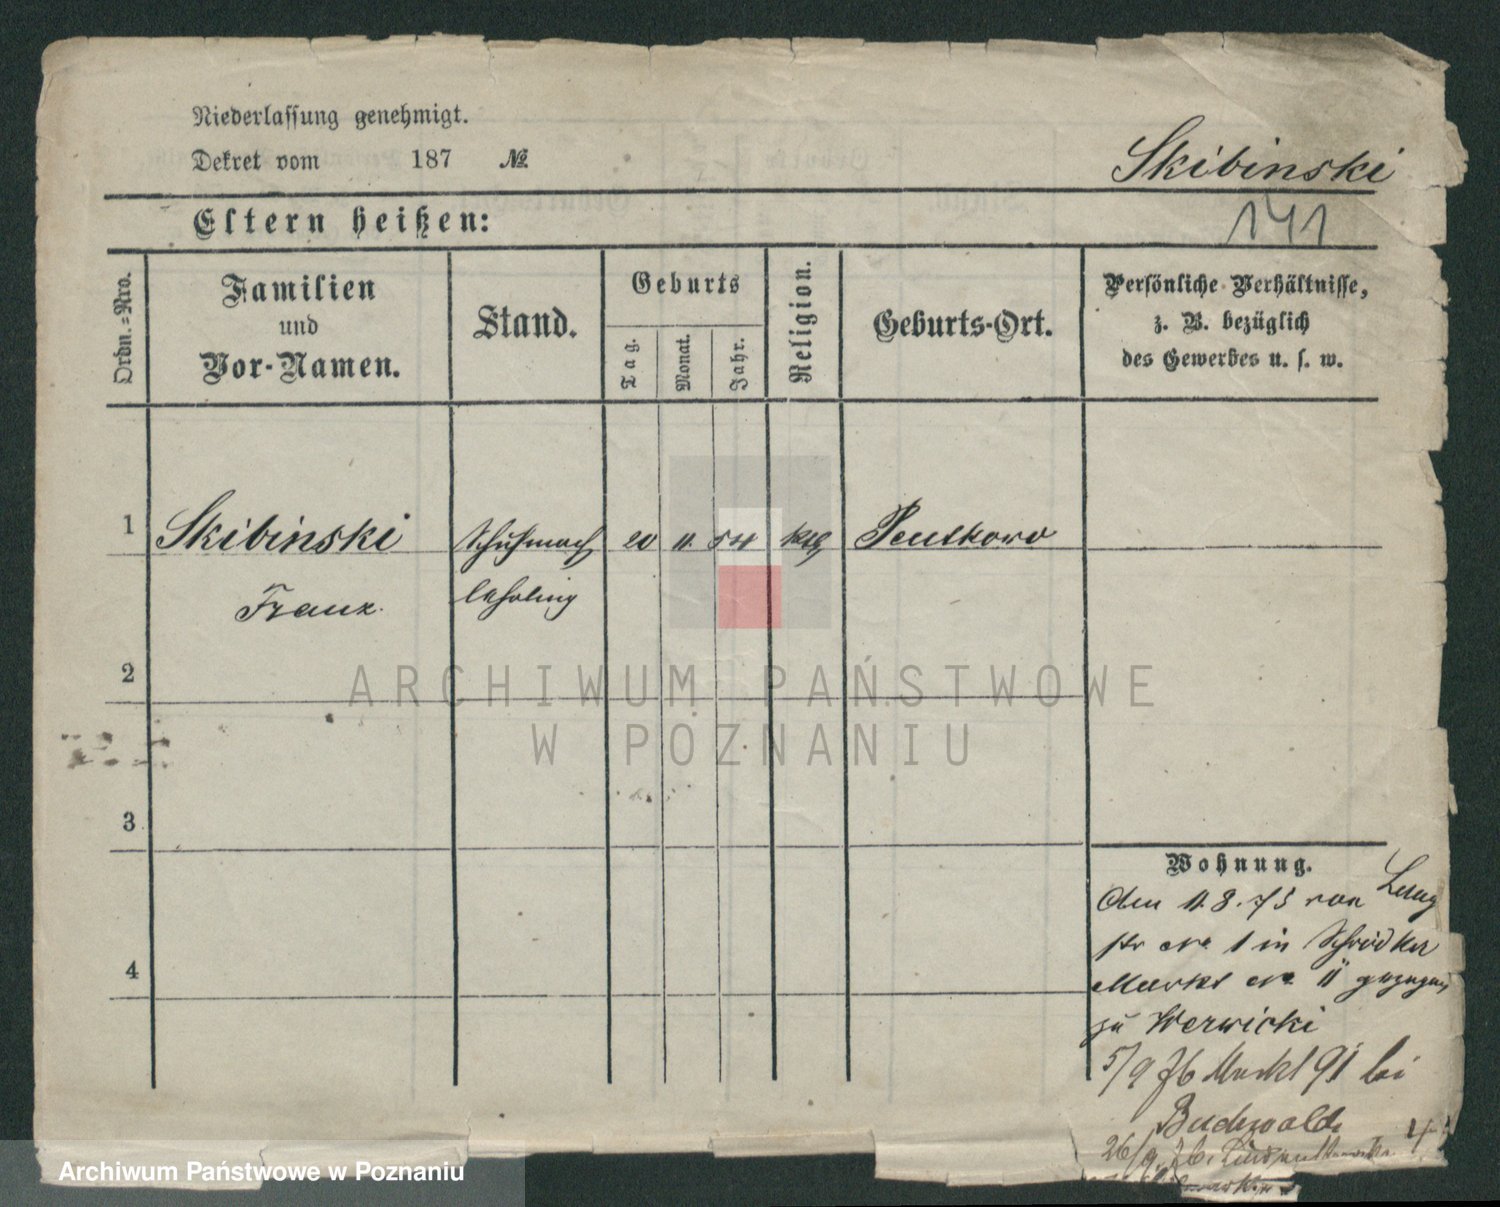 Niederlassung genehmigt.
Dekret vom 187 №
Skibinski
Eltern heißen:
141
Ordn.=Nro.
Familien
und
Vor-Namen.
Stand.
Geburts
Tag.
Monat.
Jahr.
Religion.
Geburts-Ort.
Persönliche Verhältnisse,
z. B. bezüglich
des Gewerbes u. s. w.
1 Skibinski Schuhmach 20 11. 54 kth Pentkowo
Franz. lehrling
2
ARCHIWUM PAŃSTWOWE
W POZNANIU
3
Wohnung.
Den 11.8.75 von
str No 1 in Schrodker
Markt No 11 gezogen
zu Werwicki
5/9 76 Markt 91 bei
Buchwald
26/9. 76.
4
Archiwum Państwowe w Poznaniu